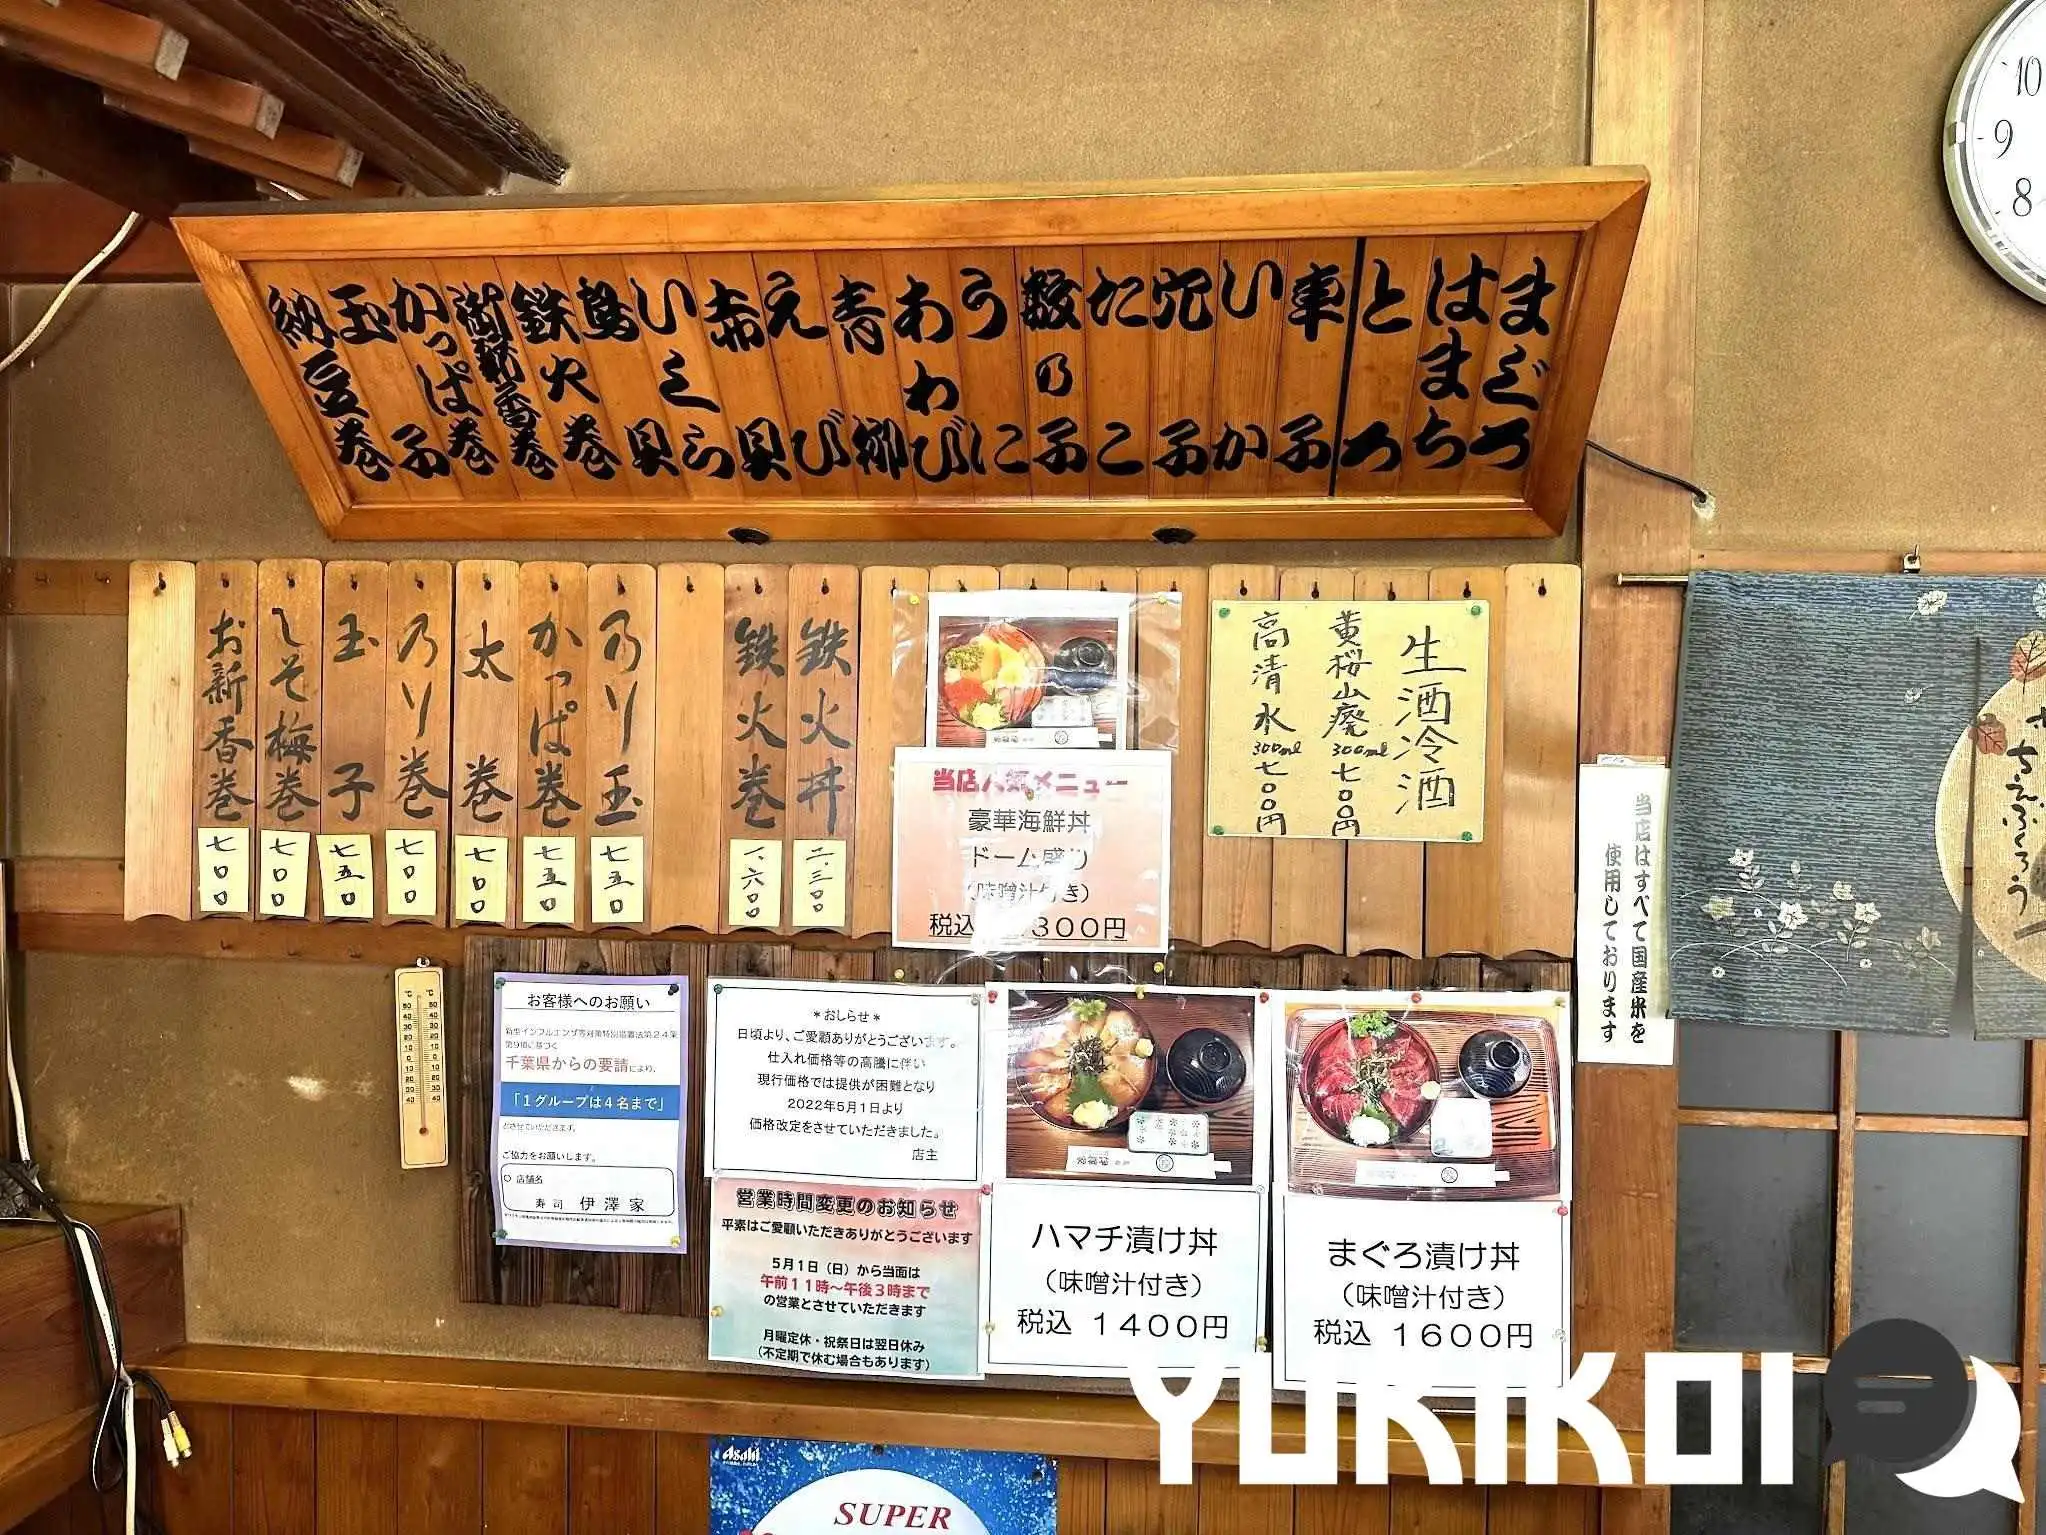 まぐろ
はまち
とろ
車子
いか
穴子
たこ
数の子
うに
あわび
青柳
えび
赤貝
いくら
鳥貝
鉄火巻
御新香巻
かっぱ巻
玉子
納豆巻
鉄火丼
二、三〇〇
鉄火巻
一、六〇〇
のり玉
七五〇
かっぱ巻
七五〇
太巻
七〇〇
のり巻
七〇〇
玉子
七五〇
しそ梅巻
七〇〇
お新香巻
七〇〇
生酒冷酒
黄桜山廃300ml七〇〇円
高清水300ml七〇〇円
当店人気メニュー
豪華海鮮丼
ドーム盛り
(味噌汁付き)
税込 300円
当店はすべて国産米を
使用しております
ちえぶくろう
お客様へのお願い
新型インフルエンザ等対策特別措置法第24条
第9項に基づく
千葉県からの要請により、
「1グループは4名まで」
とさせていただきます。
ご協力をお願いします。
店舗名
寿司 伊澤家
*おしらせ*
日頃より、ご愛顧ありがとうございます。
仕入れ価格等の高騰に伴い
現行価格では提供が困難となり
2022年5月1日より
価格改定をさせていただきました。
店主
営業時間変更のお知らせ
平素はご愛顧いただきありがとうございます
5月1日（日）から当面は
午前11時～午後3時まで
の営業とさせていただきます
月曜定休・祝祭日は翌日休み
（不定期で休む場合もあります）
ハマチ漬け丼
（味噌汁付き）
税込 1400円
まぐろ漬け丼
（味噌汁付き）
税込 1600円
10
9
8
℃ ℃
50 50
40 40
30 30
20 20
10 10
0 0
10 10
20 20
30 30
40 40
Asahi
SUPER
YURIKOI